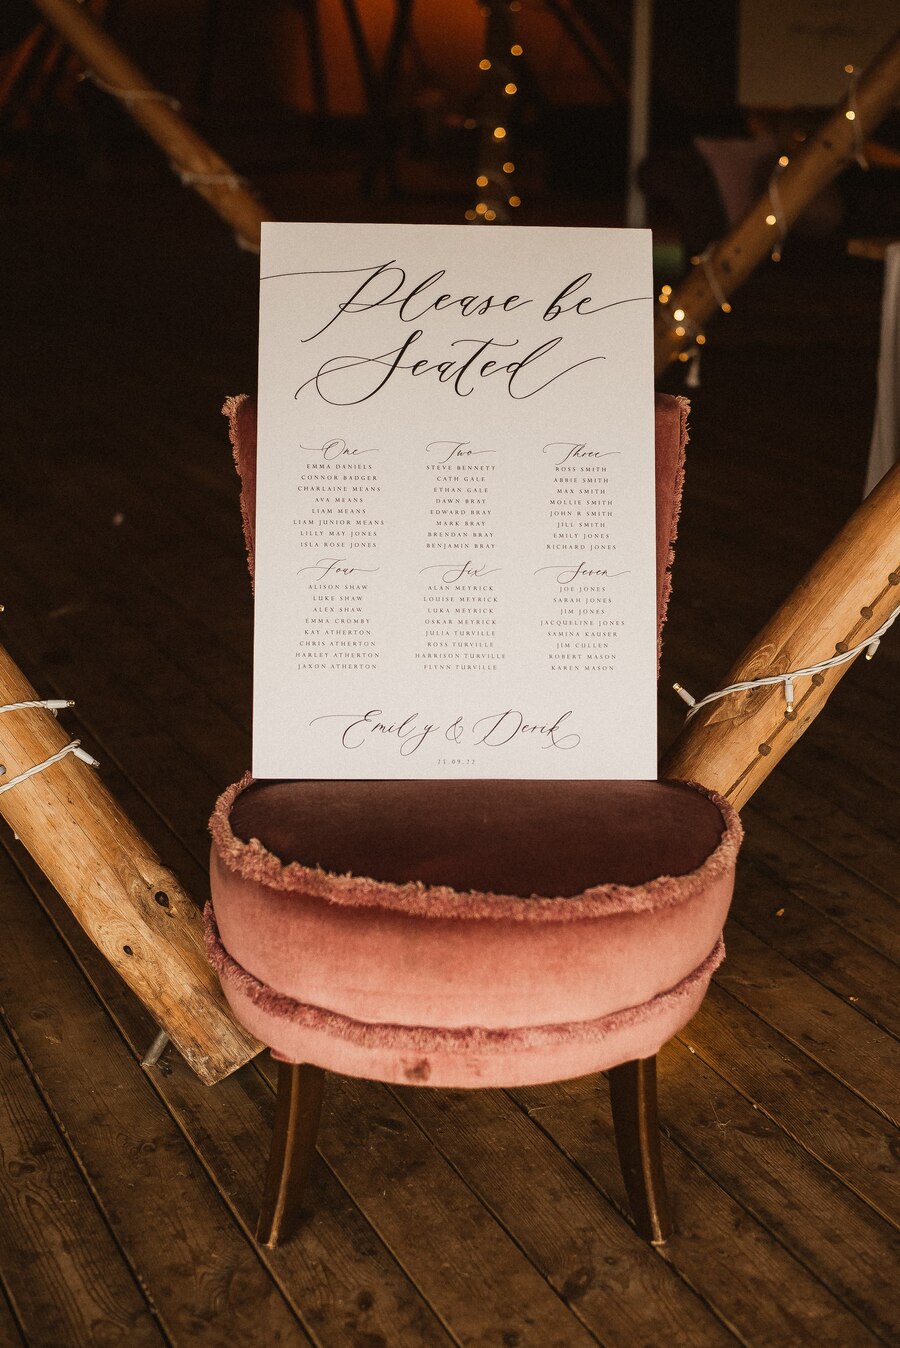 Please be
Seated
One
EMMA DANIELS
CONNOR BADGER
CHARLAINE MEANS
AVA MEANS
LIAM MEANS
LIAM JUNIOR MEANS
LILLY MAY JONES
ISLA ROSE JONES
Two
STEVE BENNETT
CATH GALE
ETHAN GALE
DAWN BRAY
EDWARD BRAY
MARK BRAY
BRENDAN BRAY
BENJAMIN BRAY
Three
ROSS SMITH
ABBIE SMITH
MAX SMITH
MOLLIE SMITH
JOHN R SMITH
JILL SMITH
EMILY JONES
RICHARD JONES
Four
ALISON SHAW
LUKE SHAW
ALEX SHAW
EMMA CROMBY
KAY ATHERTON
CHRIS ATHERTON
HARLEY ATHERTON
JAXON ATHERTON
Six
ALAN MEYRICK
LOUISE MEYRICK
LUKA MEYRICK
OSKAR MEYRICK
JULIA TURVILLE
ROSS TURVILLE
HARRISON TURVILLE
FLYNN TURVILLE
Seven
JOE JONES
SARAH JONES
JIM JONES
JACQUELINE JONES
SAMINA KAUSER
JIM CULLEN
ROBERT MASON
KAREN MASON
Emily & Derik
21.09.22